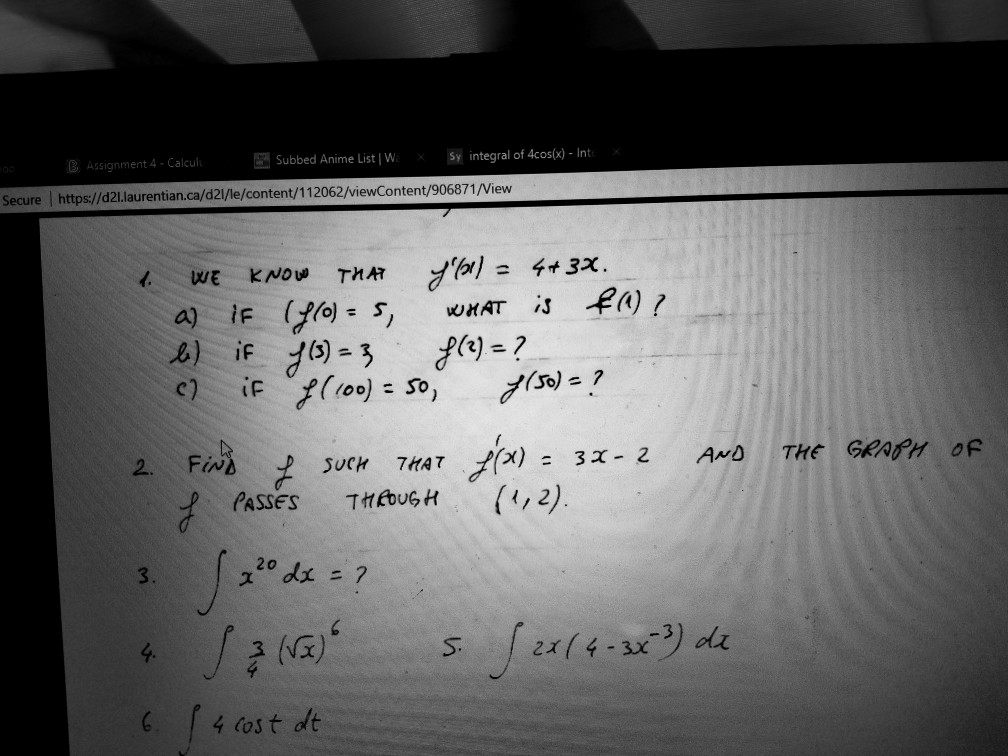 Assignment 4 - Calcul
Subbed Anime List | W
Sy integral of 4cos(x) - Int
Secure | https://d2l.laurentian.ca/d2l/le/content/112062/viewContent/906871/View
1. WE KNOW THAT f'(x) = 4+3x.
a) IF (f(0) = 5, WHAT iS f(1) ?
b) iF f(3) = 3 f(2) = ?
c) iF f(100) = 50, f(50) = ?
2. FiND f SUCH THAT f'(x) = 3x - 2 AND THE GRAPH OF
f PASSES THROUGH (1,2).
3. ∫ x²⁰ dx = ?
4. ∫ 3/4 (√x)⁶ 5. ∫ 2x(4-3x⁻³) dx
6. ∫ 4 cost dt